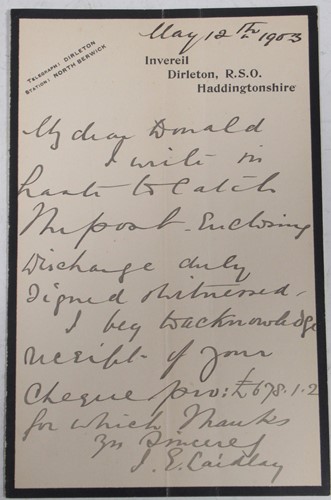 May 12th 1903
TELEGRAPH: DIRLETON
STATION: NORTH BERWICK
Invereil
Dirleton, R.S.O.
Haddingtonshire
My dear Donald
I write in
haste to Catch
the post - Enclosing
Discharge duly
Signed & witnessed -
I beg to acknowledge
receipt of your
Cheque pro: £678.1.2
for which Thanks
Yrs Sincerely
J. E. Laidlay